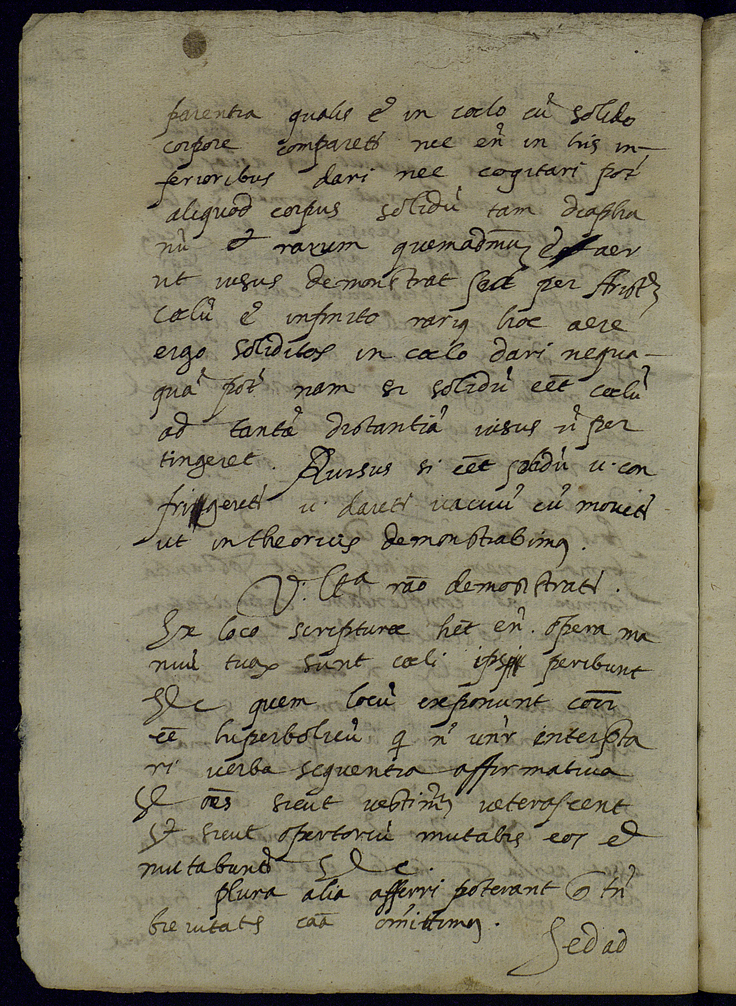 parentia qualis ẽ in coelo cũ solido
corpore comparetĩ nec eñ in his in-
ferioribus dari nec cogitari pot̃
aliquod corpus solidũ tam diapha
nũ et rarum quemadmũ aer
ut visus demonstrat sed per
coelũ ẽ infinito hoc aere
ergo soliditas in coelo dari nequa-
quã pot̃ nam si solidũ eẽt coelũ
ad tantã distantiã visus ñ per
tingeret. Rursus si eẽt solidũ ñ con
fringeretĩ ñ daretĩ vacuũ cũ movetĩ
ut in theoricis demonstrabimꝰ.
V. lta rão demonstratĩ.
Ex loco scripturæ het eñ. opera ma
nuũ tuaꝝ sunt coeli ipsi peribunt
&c quem locũ exponunt
eẽ huperbolicũ q ñ interpta
ri verba sequentia affirmativa
Et oẽs sicut vestimẽ veterascent
Et sicut opertoriũ mutabis eos et
mutabuntĩ &c.
plura alia afferri poterant tñ
brevitatis caã omittimꝰ.
Sed ad